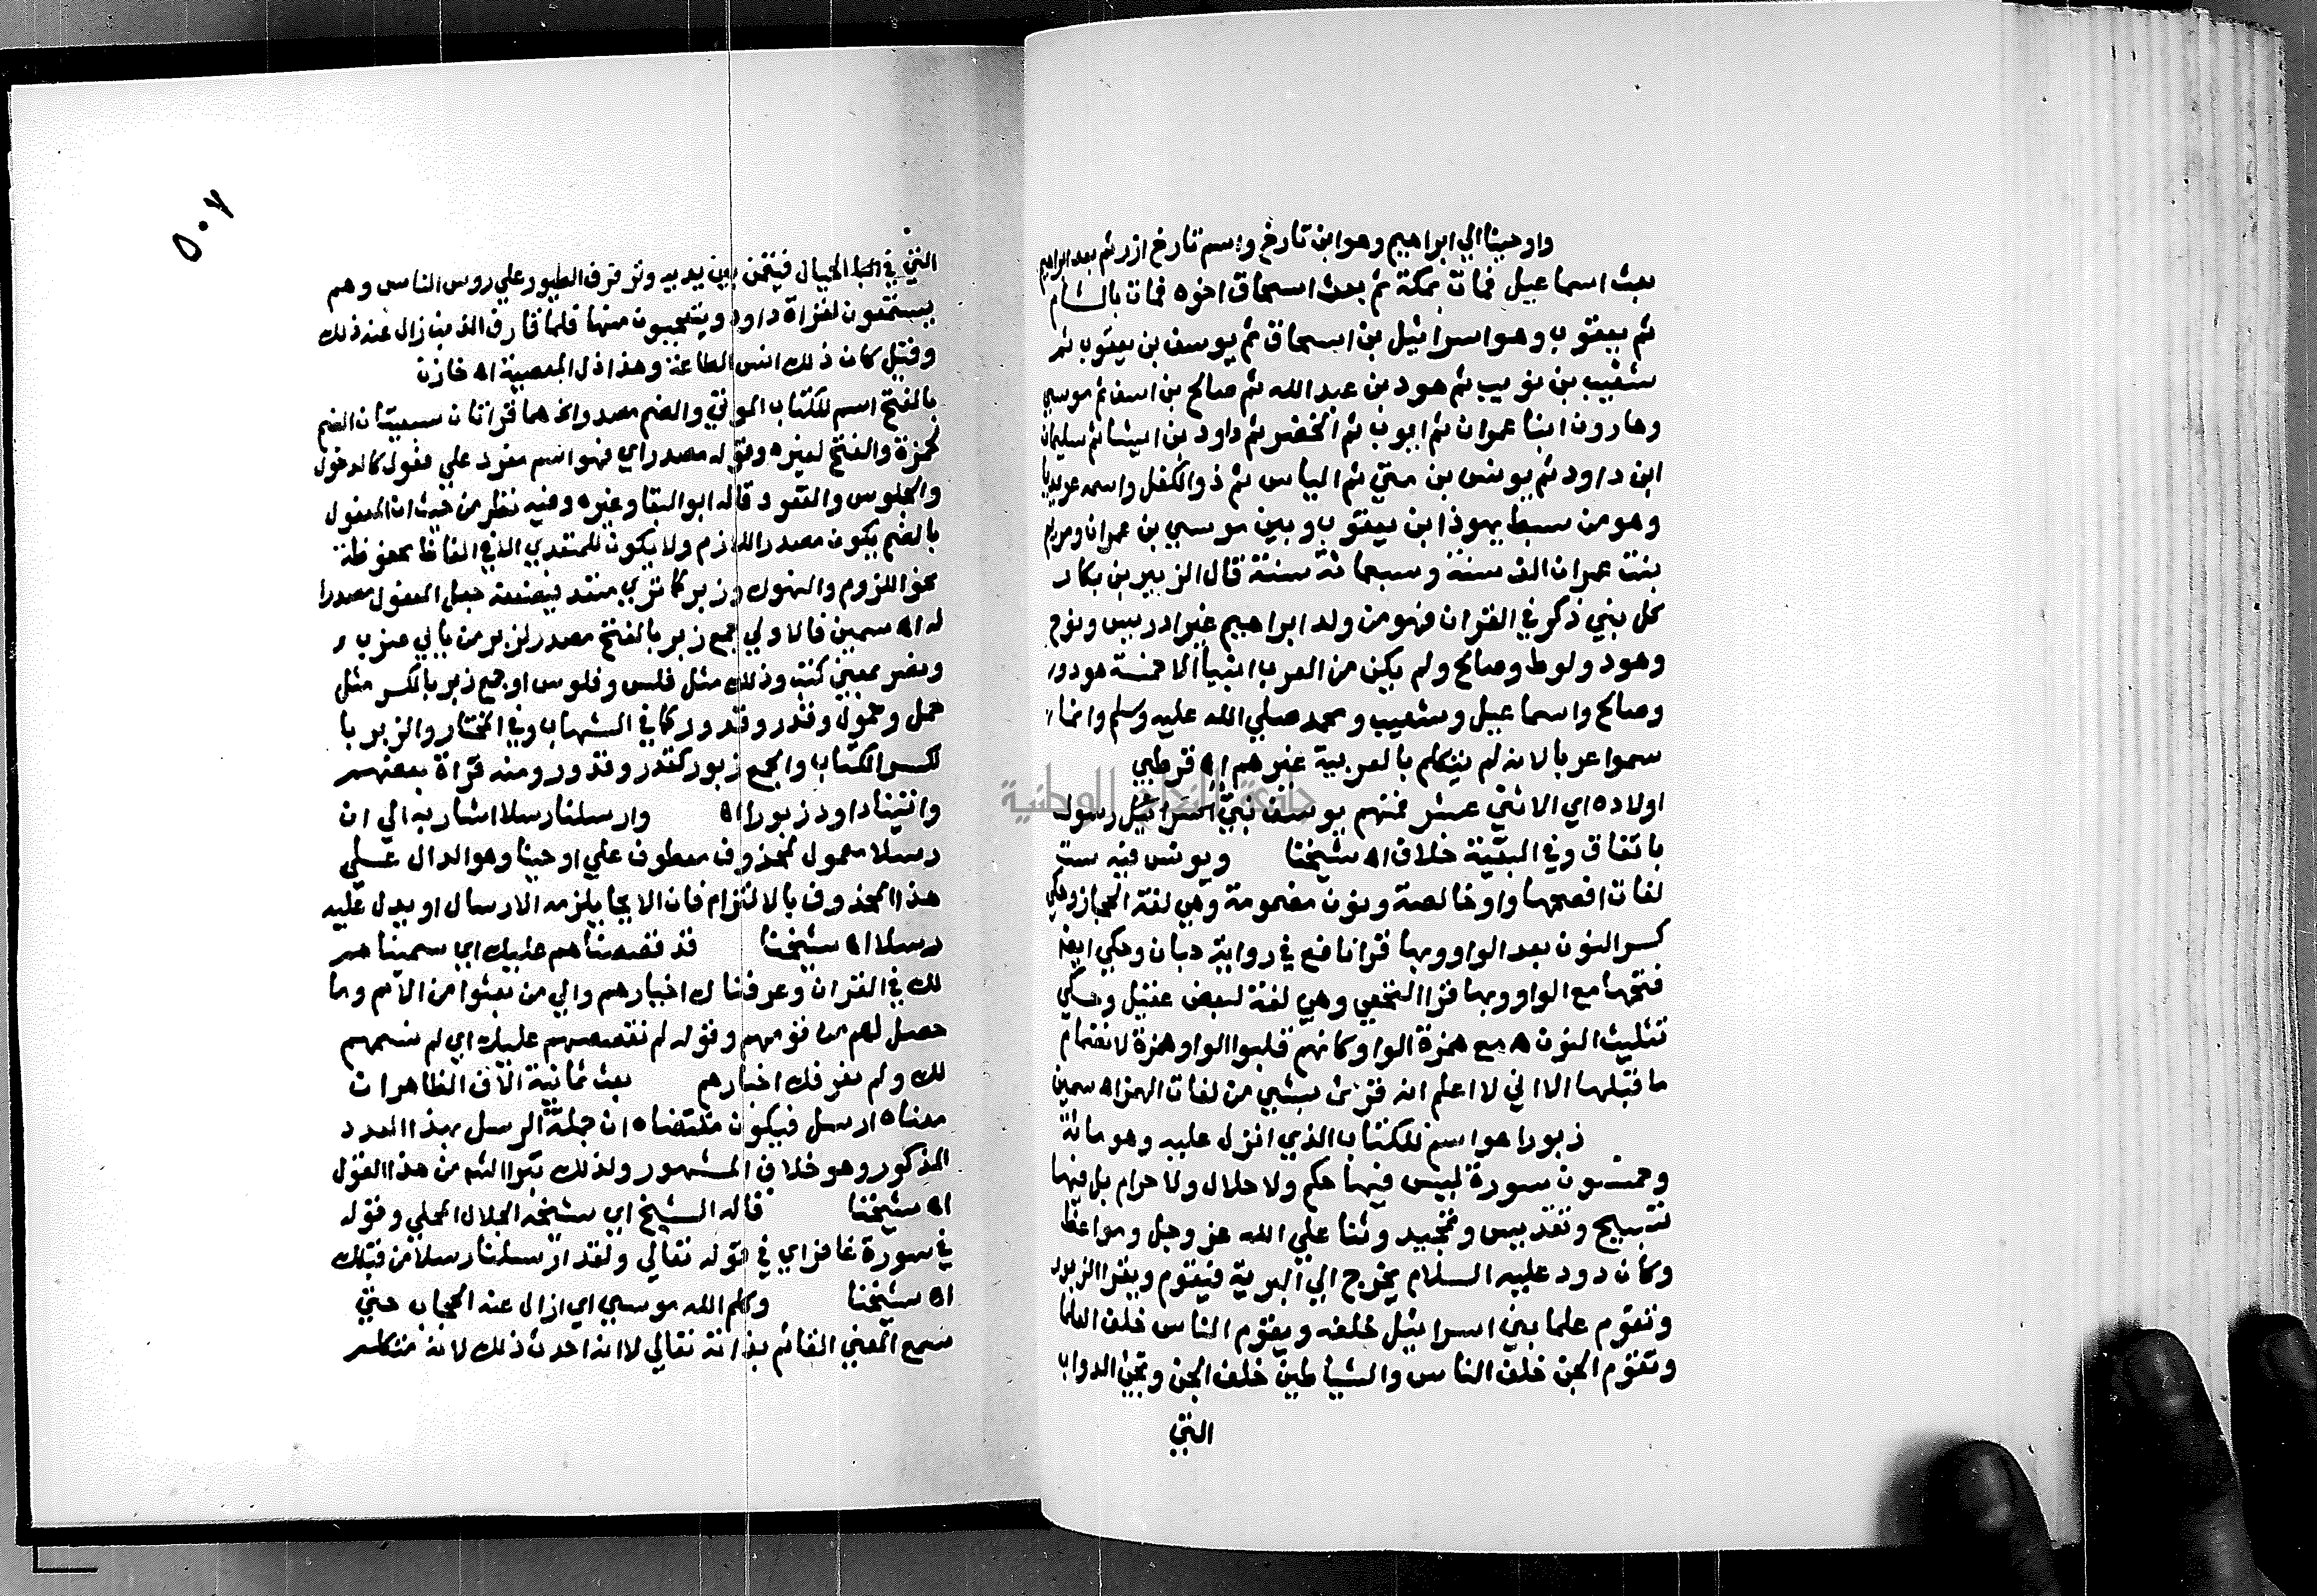 واوحينا الي ابراهيم وهو ابن تارخ واسم تارخ ازر ثم بعد ابراهيم
بعث اسماعيل فمات بمكة ثم بعث اسحاق اخوه فمات بالشام
ثم يعقوب وهو اسرائيل بن اسحاق ثم يوسف بن يعقوب ثم
شعيب بن نويب ثم هود بن عبد الله ثم صالح بن اسف ثم موسي
وهارون ابنا عمران ثم ايوب ثم الخضر ثم داود بن ايشا ثم سليمان
ابن داود ثم يونس بن متي ثم الياس ثم ذو الكفل واسمه عويديا
وهو من سبط يهوذا بن يعقوب وبين موسي بن عمران ومريم
بنت عمران الف سنة وسبعمائة سنة قال الزبير بن بكار
كل نبي ذكر في القران فهو من ولد ابراهيم غير ادريس ونوح
وهود ولوط وصالح ولم يكن من العرب انبيا الا خمسة هود و
وصالح واسماعيل وشعيب ومحمد صلي الله عليه وسلم وانما
سموا عربا لانه لم يتكلم بالعربية غيرهم اه قرطبي
اولاده اي الاثني عشر فمنهم يوسف نبي رسول
باتفاق وفي البقية خلاف اه شيخنا ويونس فيه ست
لغات افصحها واو خالصة ونون مضمومة وهي لغة الحجاز وحكي
كسر النون بعد الواو وبها قرا نافع في رواية حبان وحكي ايضا
فتحها مع الواو وبها قرا النخعي وهي لغة لبعض عقيل وحكي
تثليث النون مع همزة الواو كانهم قلبوا الواو همزة لانضمام
ما قبلها الا اني لا اعلم انه قرئ بشي من لغات الهمز اه سمين
زبورا هو اسم للكتاب الذي انزل عليه وهو مائة
وخمسون سورة ليس فيها حكم ولا حلال ولا حرام بل فيها
تسبيح وتقديس وتمجيد وثنا علي الله عز وجل ومواعظ
وكان دود عليه السلام يخرج الي البرية فيقوم ويقرا الزبور
وتقوم علما بني اسرائيل خلفه ويقوم الناس خلف العلما
وتقوم الجن خلف الناس والشياطين خلف الجن وتجئ الدواب
التي
٥٠٧
التي في الجبال فيقمن بين يديه وترفرف الطيور علي روس الناس وهم
يستمعون لقراة داود ويتعجبون منها فلما قارف الذنب زال عنه ذلك
وقيل كان ذلك انس الطاعة وهذا ذل المعصية اه خازن
بالفتح اسم للكتاب الموتي والضم مصدر الخ هما قراتان سبعيتان الضم
لحمزة والفتح لغيره وقوله مصدر اي فهو اسم مفرد علي فعول كالدخول
والجلوس والقعود قاله ابو البقا وغيره وفيه نظر من حيث ان الفعول
بالضم يكون مصدر اللازم ولا يكون للمتعدي الا في الفاظ محفوظة
نحو اللزوم والنهوك وزبر كما تري متعد فيضعف جعل الفعول مصدرا
له اه سمين فالاولي جمع زبر بالفتح مصدر لزبر من بابي ضرب و
ونصر بمعني كتب وذلك مثل فلس وفلوس او جمع زبر بالكسر مثل
حمل وحمول وقدر وقدور كما في الشهاب وفي المختار والزبر با
لكسر الكتاب والجمع زبور كقدر وقدور ومنه قراة بعضهم
واتينا داود زبورا اه وارسلنا رسلا اشار به الي ان
رسلا معمول لمحذوف معطوف علي اوحينا وهو الدال علي
هذا المحذوف بالالتزام فان الايحا يلزمه الارسال او يدل عليه
رسلا اه شيخنا قد قصصناهم عليك اي سميناهم
لك في القران وعرفناك اخبارهم والي من بعثوا من الامم وما
حصل لهم من قومهم وقوله لم نقصصهم عليك اي لم نسمهم
لك ولم نعرفك اخبارهم بعث ثمانية الاف الظاهر ان
معناه ارسل فيكون مقتضاه ان جملة الرسل بهذا العدد
المذكور وهو خلاف المشهور ولذلك تبرا الشم من هذا القول
اه شيخنا قاله الشيخ اي شيخه الجلال المحلي وقوله
في سورة غافر اي في قوله تعالي ولقد ارسلنا رسلا من قبلك
اه شيخنا وكلم الله موسي اي ازال عنه الحجاب حتي
سمع المعني القائم بذاته تعالي لا انه احدث ذلك لانه متكلم